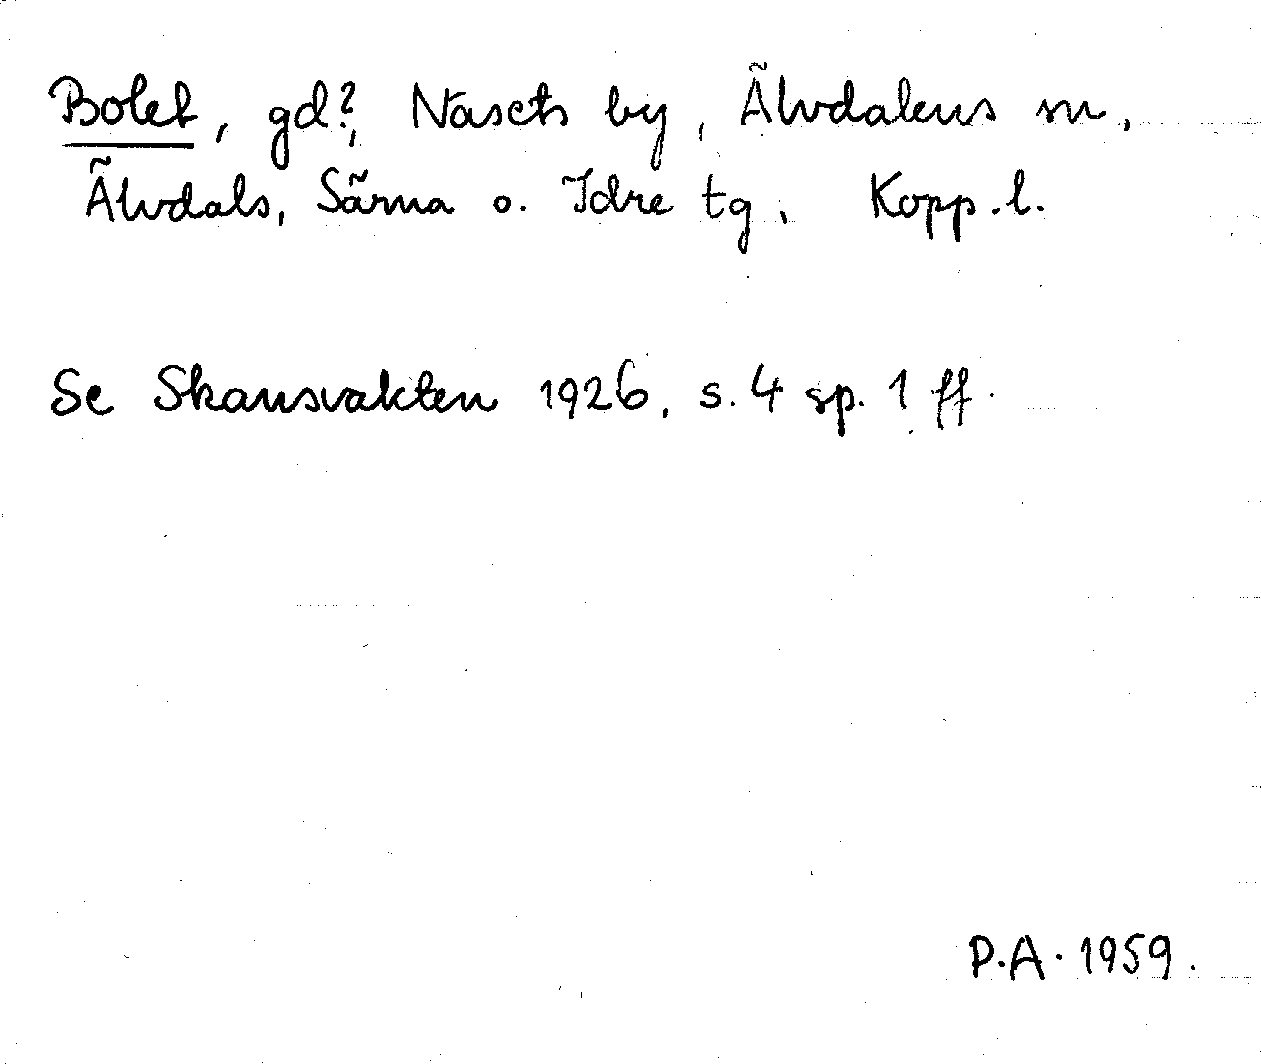 Bolet, gd?, Näsets by, Älvdalens sn,
Älvdals, Särna o. Idre tg. Kopp.l.
Se Skansvakten 1926, s. 4 sp. 1 ff.
P.A. 1959.